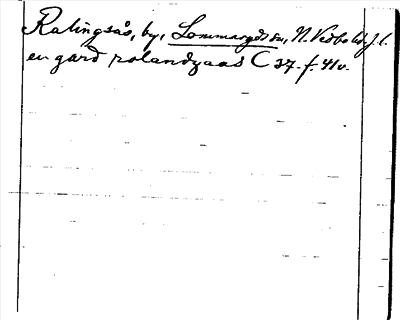 Ralingsås, by, Lommaryds sn, N. Vedbo hd. J. l.
en gard rolandzaas C 37. f. 41v.